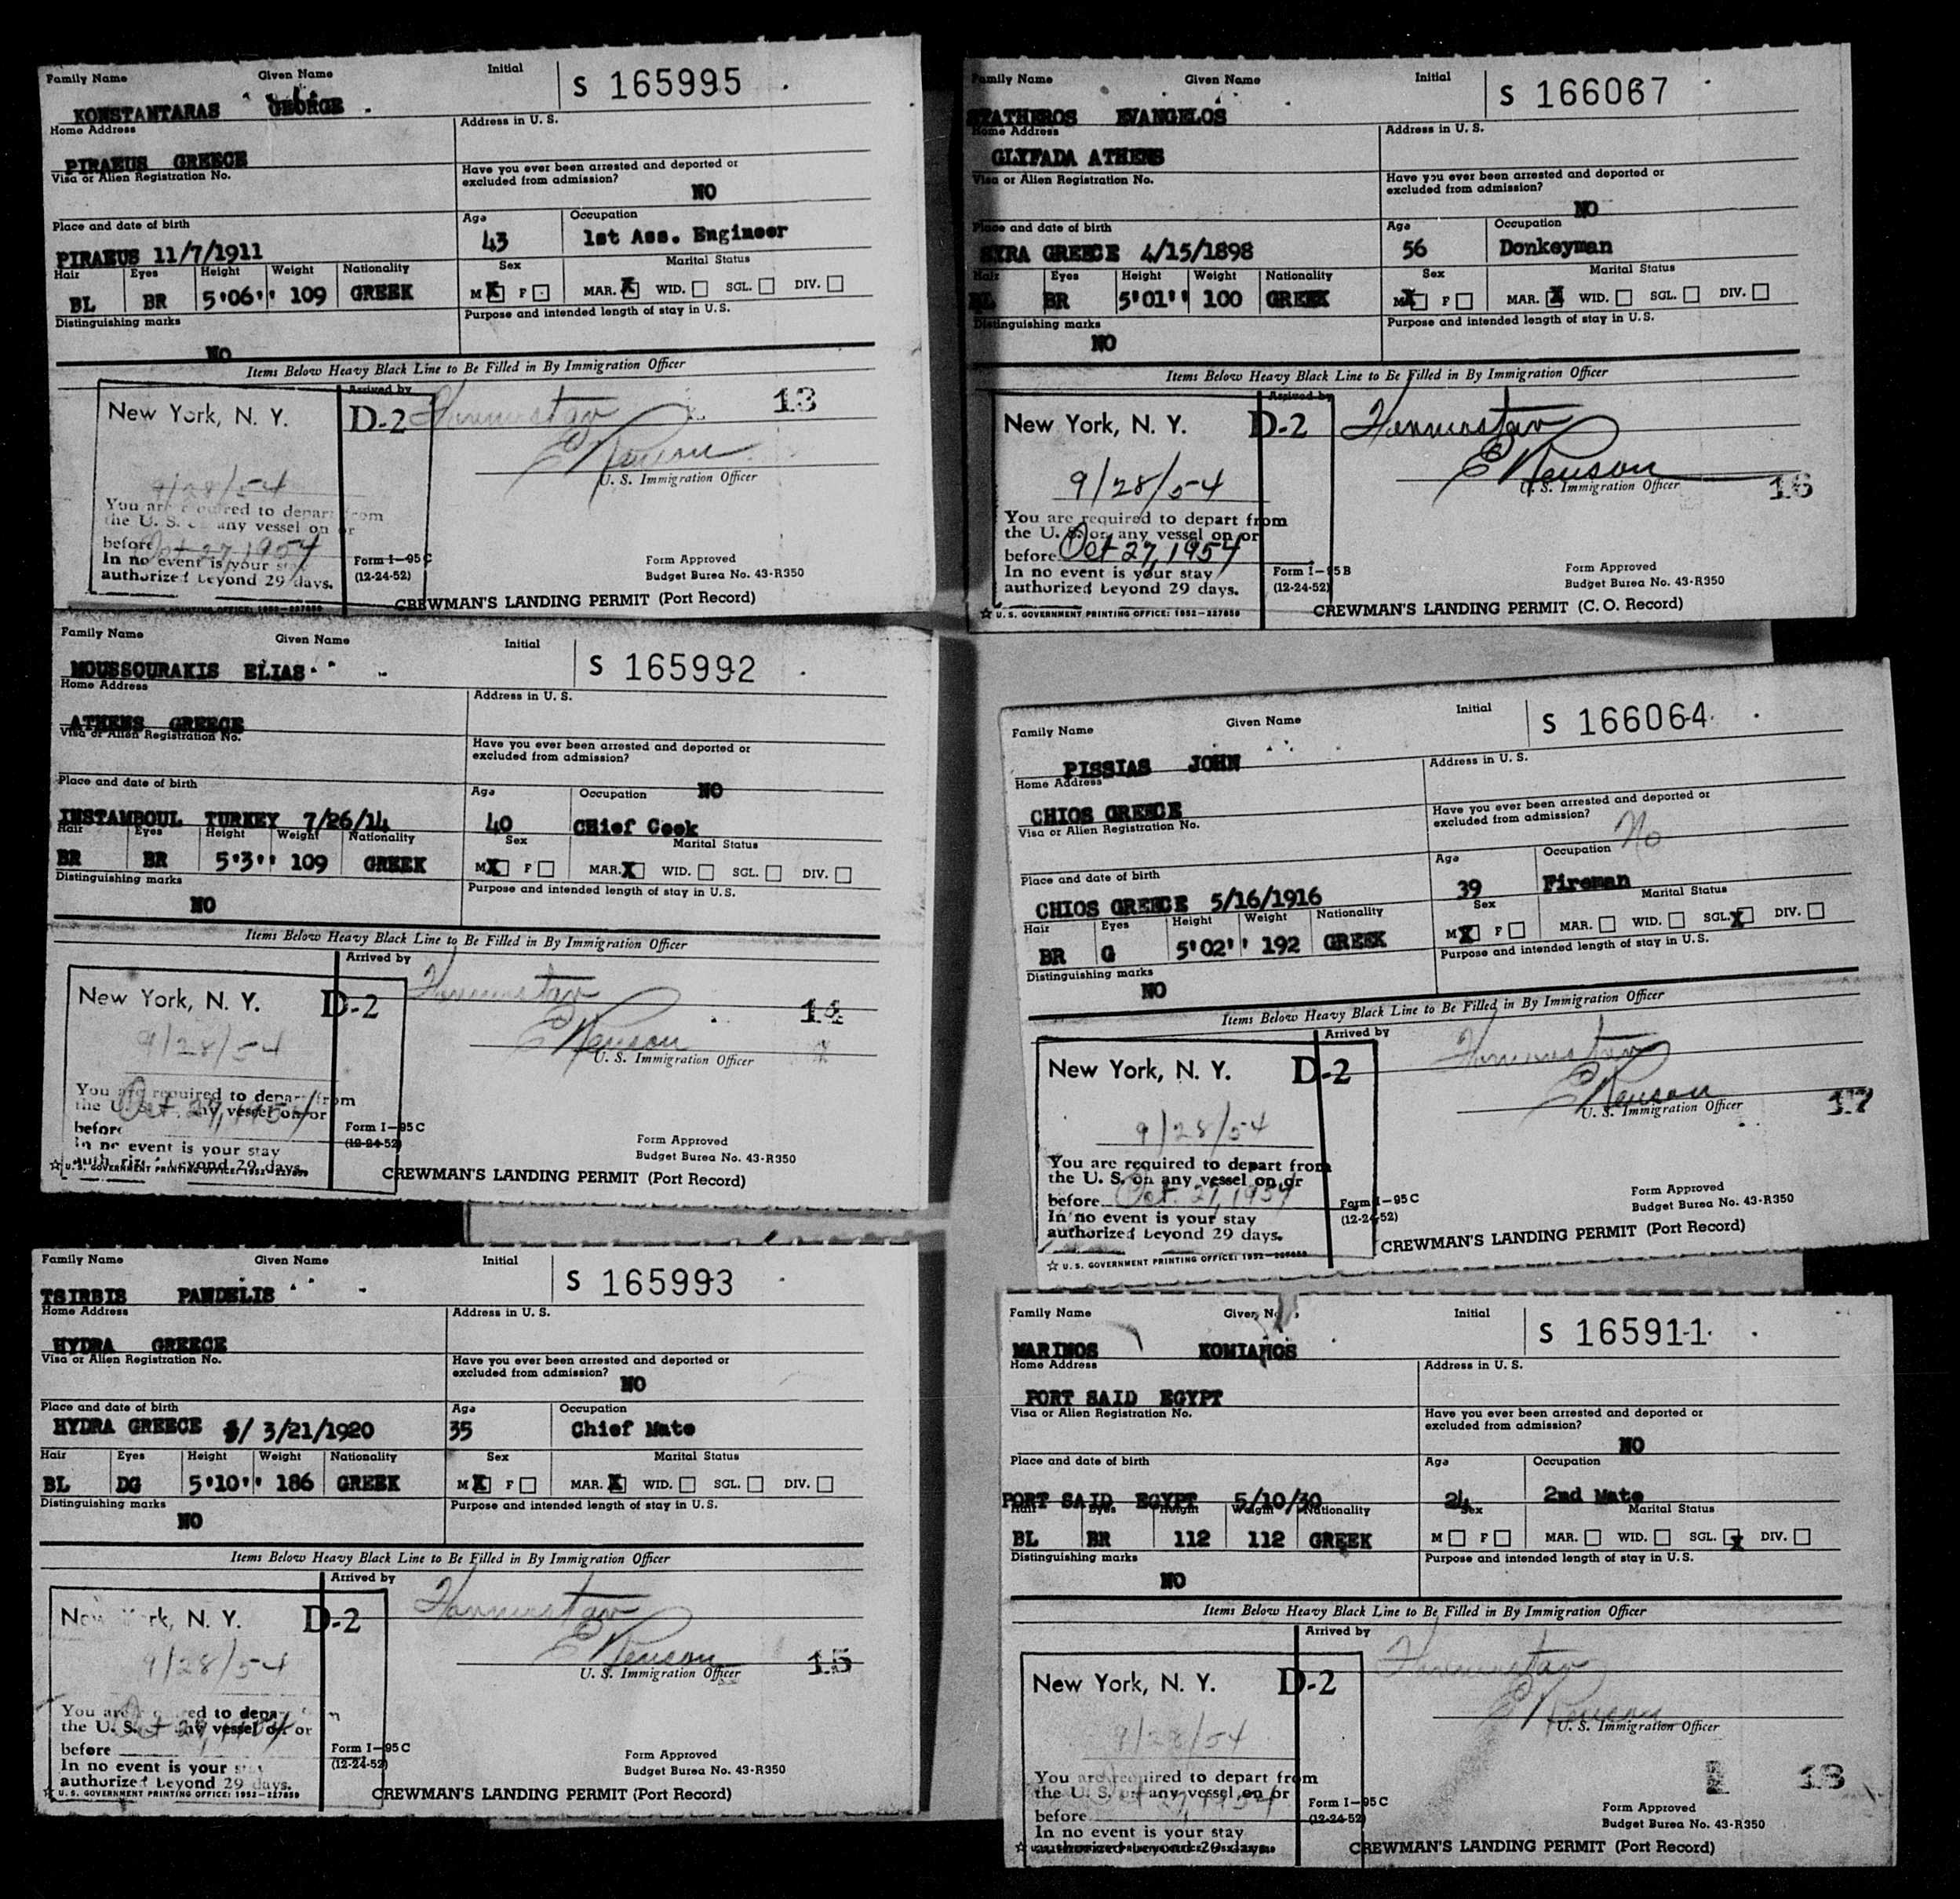 Family Name Given Name Initial S 165995
KONSTANTARAS GEORGE
Home Address Address in U. S.
PIRAEUS GREECE
Visa or Alien Registration No. Have you ever been arrested and deported or
excluded from admission?
NO
Place and date of birth Age Occupation
PIRAEUS 11/7/1911 43 1st Ass. Engineer
Hair Eyes Height Weight Nationality Sex Marital Status
BL BR 5'06'' 109 GREEK M X F MAR. X WID. SGL. DIV.
Distinguishing marks Purpose and intended length of stay in U.S.
NO
Items Below Heavy Black Line to Be Filled in By Immigration Officer
Arrived by
New York, N. Y. D-2 13
U. S. Immigration Officer
9/28/54
You are required to depart from
the U. S. on any vessel on or
before Oct 27, 1954
In no event is your stay
authorized beyond 29 days.
Form I-95 C
(12-24-52)
Form Approved
Budget Burea No. 43-R350
U.S. GOVERNMENT PRINTING OFFICE: 1952-227859
CREWMAN'S LANDING PERMIT (Port Record)
Family Name Given Name Initial S 165992
MOUSSOURAKIS ELIAS
Home Address Address in U. S.
ATHENS GREECE
Visa or Alien Registration No. Have you ever been arrested and deported or
excluded from admission?
NO
Place and date of birth Age Occupation
INSTAMBOUL TURKEY 7/26/14 40 CHief Cook
Hair Eyes Height Weight Nationality Sex Marital Status
BR BR 5'3'' 109 GREEK M X F MAR. X WID. SGL. DIV.
Distinguishing marks Purpose and intended length of stay in U.S.
NO
Items Below Heavy Black Line to Be Filled in By Immigration Officer
Arrived by
New York, N. Y. D-2 14
U. S. Immigration Officer
9/28/54
You are required to depart from
the U. S. on any vessel on or
before Oct 27, 1954
In no event is your stay
authorized beyond 29 days.
Form I-95 C
(12-24-52)
Form Approved
Budget Burea No. 43-R350
U.S. GOVERNMENT PRINTING OFFICE: 1952-227859
CREWMAN'S LANDING PERMIT (Port Record)
Family Name Given Name Initial S 165993
TSIRBIS PANDELIS
Home Address Address in U. S.
HYDRA GREECE
Visa or Alien Registration No. Have you ever been arrested and deported or
excluded from admission?
NO
Place and date of birth Age Occupation
HYDRA GREECE 3/21/1920 35 Chief Mate
Hair Eyes Height Weight Nationality Sex Marital Status
BL DG 5'10'' 186 GREEK M X F MAR. X WID. SGL. DIV.
Distinguishing marks Purpose and intended length of stay in U.S.
NO
Items Below Heavy Black Line to Be Filled in By Immigration Officer
Arrived by
New York, N. Y. D-2
15
U. S. Immigration Officer
9/28/54
You are required to depart
the U. S. on any vessel on or
before
In no event is your stay
authorized beyond 29 days.
Form I-95 C
(12-24-52)
Form Approved
Budget Burea No. 43-R350
U.S. GOVERNMENT PRINTING OFFICE: 1952-227859
CREWMAN'S LANDING PERMIT (Port Record)
Family Name Given Name Initial S 166067
STATHEROS EVANGELOS
Home Address Address in U. S.
GLYFADA ATHENS
Visa or Alien Registration No. Have you ever been arrested and deported or
excluded from admission?
NO
Place and date of birth Age Occupation
SYRA GREECE 4/15/1898 56 Donkeyman
Hair Eyes Height Weight Nationality Sex Marital Status
BL BR 5'01'' 100 GREEK M X F MAR. X WID. SGL. DIV.
Distinguishing marks Purpose and intended length of stay in U.S.
NO
Items Below Heavy Black Line to Be Filled in By Immigration Officer
Arrived by
New York, N. Y. D-2
U. S. Immigration Officer 16
9/28/54
You are required to depart from
the U. S. on any vessel on or
before Oct 27, 1954
In no event is your stay
authorized beyond 29 days.
Form I-95 B
(12-24-52)
Form Approved
Budget Burea No. 43-R350
U.S. GOVERNMENT PRINTING OFFICE: 1952-227859
CREWMAN'S LANDING PERMIT (C. O. Record)
Family Name Given Name Initial S 166064
PISSIAS JOHN
Home Address Address in U. S.
CHIOS GREECE
Visa or Alien Registration No. Have you ever been arrested and deported or
excluded from admission?
No
Place and date of birth Age Occupation
CHIOS GREECE 5/16/1916 39 Fireman
Hair Eyes Height Weight Nationality Sex Marital Status
BR G 5'02'' 192 GREEK M X F MAR. WID. SGL. X DIV.
Distinguishing marks Purpose and intended length of stay in U.S.
NO
Items Below Heavy Black Line to Be Filled in By Immigration Officer
Arrived by
New York, N. Y. D-2
U. S. Immigration Officer 17
9/28/54
You are required to depart from
the U. S. on any vessel on or
before Oct. 27, 1954
In no event is your stay
authorized beyond 29 days.
Form I-95 C
(12-24-52)
Form Approved
Budget Burea No. 43-R350
U.S. GOVERNMENT PRINTING OFFICE: 1952-227859
CREWMAN'S LANDING PERMIT (Port Record)
Family Name Given Initial S 165911
MARINOS KOMIANOS
Home Address Address in U. S.
PORT SAID EGYPT
Visa or Alien Registration No. Have you ever been arrested and deported or
excluded from admission?
NO
Place and date of birth Age Occupation
PORT SAID EGYPT 5/10/30 24 2nd Mate
Hair Eyes Height Weight Nationality Sex Marital Status
BL BR 112 112 GREEK M F MAR. WID. SGL. X DIV.
Distinguishing marks Purpose and intended length of stay in U.S.
NO
Items Below Heavy Black Line to Be Filled in By Immigration Officer
Arrived by
New York, N. Y. D-2
U. S. Immigration Officer
9/28/54
18
You are required to depart from
the U. S. on any vessel on or
before
In no event is your stay
authorized beyond 29 days.
Form I-95 C
(12-24-52)
Form Approved
Budget Burea No. 43-R350
CREWMAN'S LANDING PERMIT (Port Record)